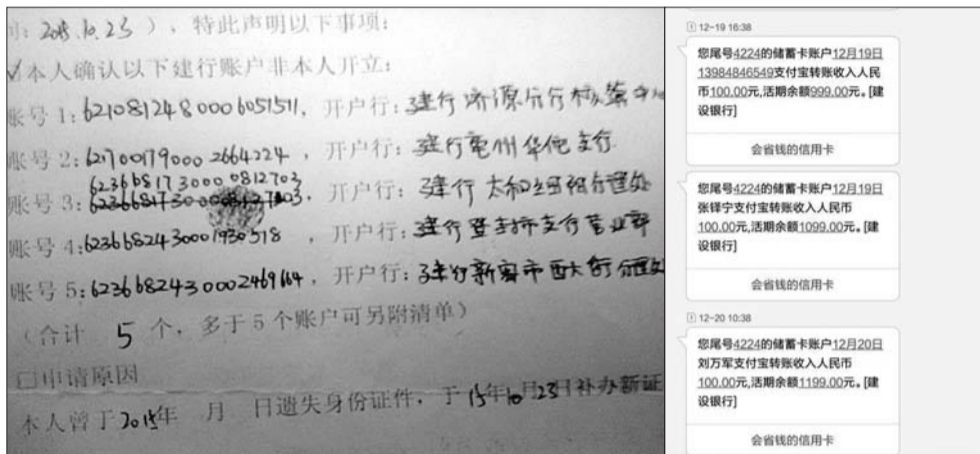 间: 2015.10.23 ), 特此声明以下事项:
√本人确认以下建行账户非本人开立:
账号 1: 6210812480006051511, 开户行: 建行济源分行核算中心
账号 2: 6217001790002664224, 开户行: 建行亳州华佗支行
6236681730000812703
账号 3: 6236681730000812703, 开户行: 建行太和
账号 4: 6236682430001930518, 开户行: 建行登封市支行营业部
账号 5: 6236682430002469164, 开户行: 建行新密市西大街分理处
(合计 5 个, 多于 5 个账户可另附清单)
□申请原因
本人曾于2015年 月 日遗失身份证件, 于 15年10月23日补办新证
12-19 16:38
您尾号4224的储蓄卡账户12月19日
13984846549支付宝转账收入人民
币100.00元,活期余额999.00元。[建
设银行]
会省钱的信用卡
您尾号4224的储蓄卡账户12月19日
张铎宁支付宝转账收入人民币
100.00元,活期余额1099.00元。[建
设银行]
会省钱的信用卡
12-20 10:38
您尾号4224的储蓄卡账户12月20日
刘万军支付宝转账收入人民币
100.00元,活期余额1199.00元。[建
设银行]
会省钱的信用卡